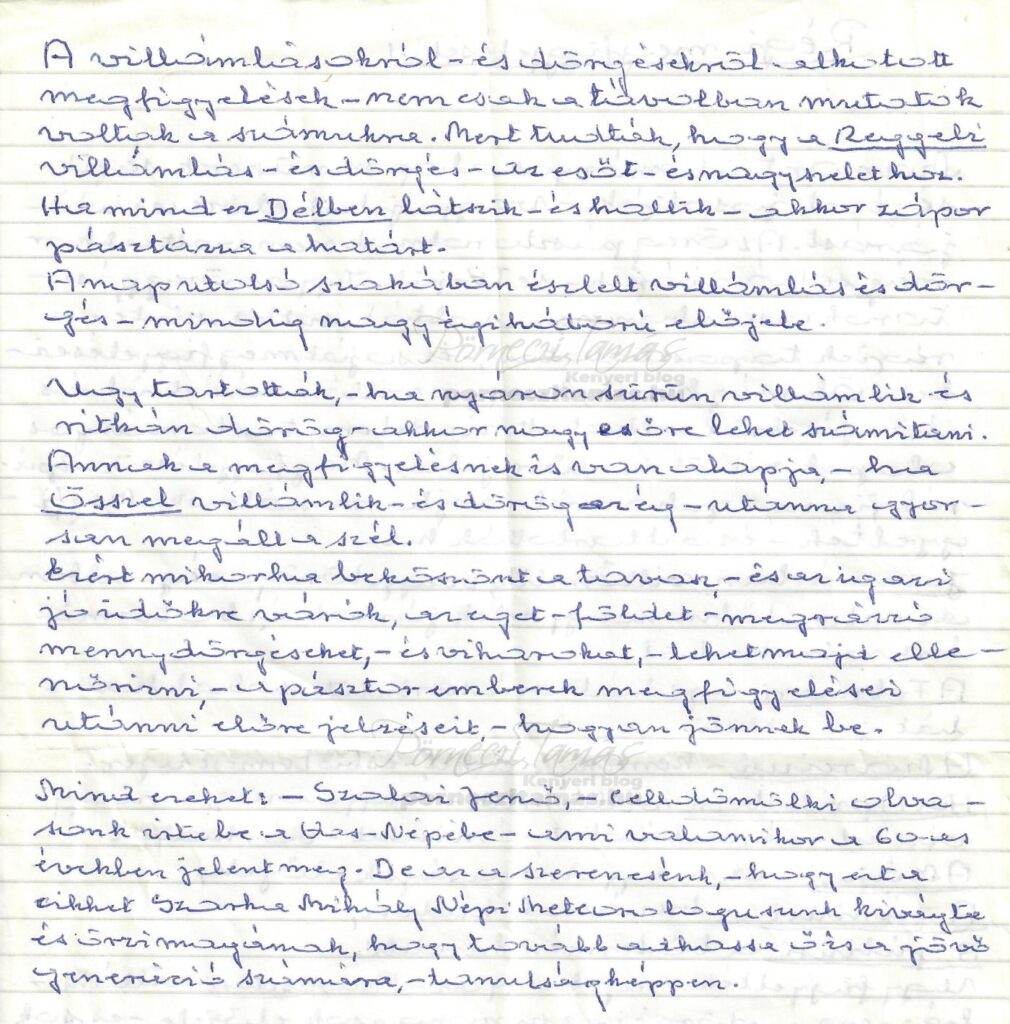 A villámlásokról - és dörgésekről - alkotott
megfigyelések - nem csak a távolban mutatók
voltak a számukra. Mert tudták, hogy a Reggeli
villámlás - és dörgés - az esőt - és nagy szelet hoz.
Ha mind ez Délben látszik - és hallik - akkor zápor
pásztázza a határt.
A nap utolsó szakában észlelt villámlás és dör-
gés - mindig nagy égiháború előjele.
Pörneczi Tamás
Kenyeri blog
Ugy tartották, - ha nyáron sürün villámlik és
ritkán dörög - akkor nagy esőre lehet számitani.
Annak a megfigyelésnek is van alapja, - ha
Ősszel villámlik - és dörög az ég - utánna gyor-
san megáll a szél.
Ezért mikor ha beköszönt a tavasz, - és az igazi
jó üdőkre várók, az eget - földet - megrázzó
mennydörgéseket, - és viharokat, - lehet majd elle-
nőrizni, - a pásztor emberek megfigyelései
utánni előre jelzéseit, - hogyan jönnek be.
Pörneczi Tamás
Kenyeri blog
Mind ezeket: - Szalai Jenő, - Celldömölki olva-
sonk irta be a Vas-Népébe - ami valamikor a 60-as
években jelent meg. De az a szerencsénk, - hogy ezt a
cikket Szarka Mihály Népi Meteorologusunk kivágta
és őrzi magának, hogy tovább adhassa ő is a jövő
generáció számára, - tanulságképpen.